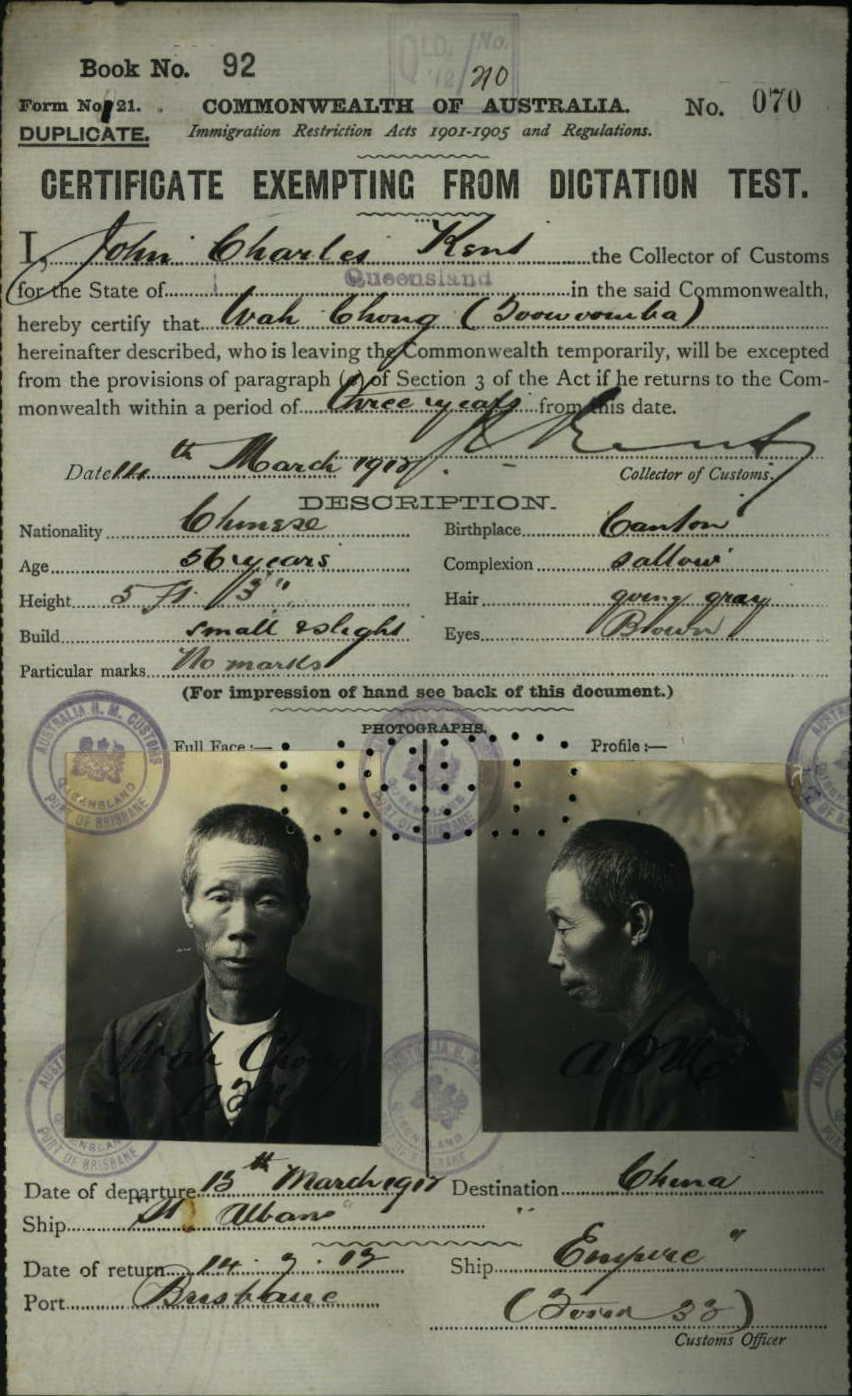 QLD. No.
Book No. 92
Form No. 21. COMMONWEALTH OF AUSTRALIA. No. 070
DUPLICATE. Immigration Restriction Acts 1901-1905 and Regulations.
CERTIFICATE EXEMPTING FROM DICTATION TEST.
I, John Charles Kent the Collector of Customs
for the State of Queensland in the said Commonwealth,
hereby certify that Wah Chong (Toowoomba)
hereinafter described, who is leaving the Commonwealth temporarily, will be excepted
from the provisions of paragraph (a) of Section 3 of the Act if he returns to the Com-
monwealth within a period of three years from this date.
Date 11th March 1912 Collector of Customs.
DESCRIPTION.
Nationality Chinese Birthplace Canton
Age 56 years Complexion sallow
Height 5 ft 3" Hair going gray
Build small & slight Eyes Brown
Particular marks No marks
(For impression of hand see back of this document.)
PHOTOGRAPHS.
Full Face:— Profile:—
AUSTRALIA H. M. CUSTOMS
QUEENSLAND
PORT OF BRISBANE
Wah Chong
Date of departure 13th March 191 Destination China
Ship St Albans
Date of return 14 Ship Empire
Port Brisbane
Customs Officer